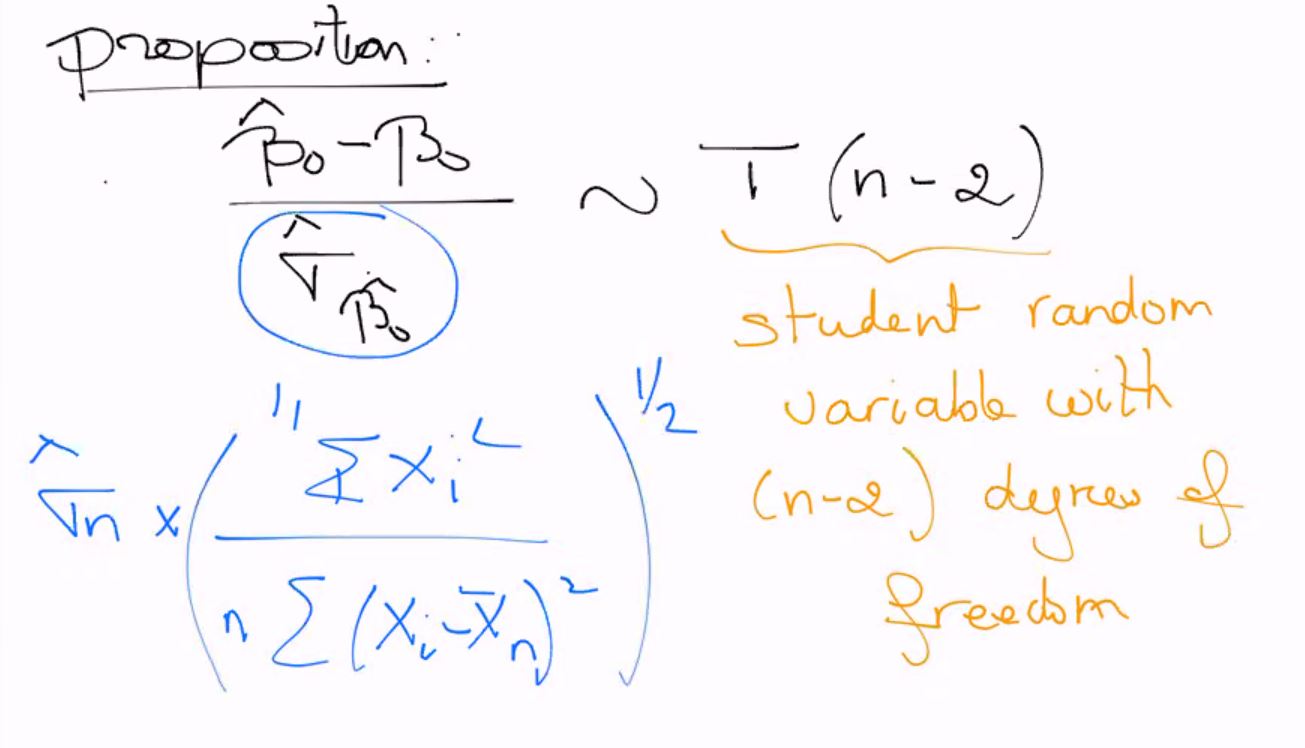 Proposition:
\frac{\hat{\beta}_0 - \beta_0}{\hat{\sigma}_{\hat{\beta}_0}} \sim T(n-2)
student random
variable with
(n-2) degrees of
freedom
\hat{\sigma}_n \times \left( \frac{\sum X_i^2}{n \sum (X_i - \bar{X}_n)^2} \right)^{1/2}